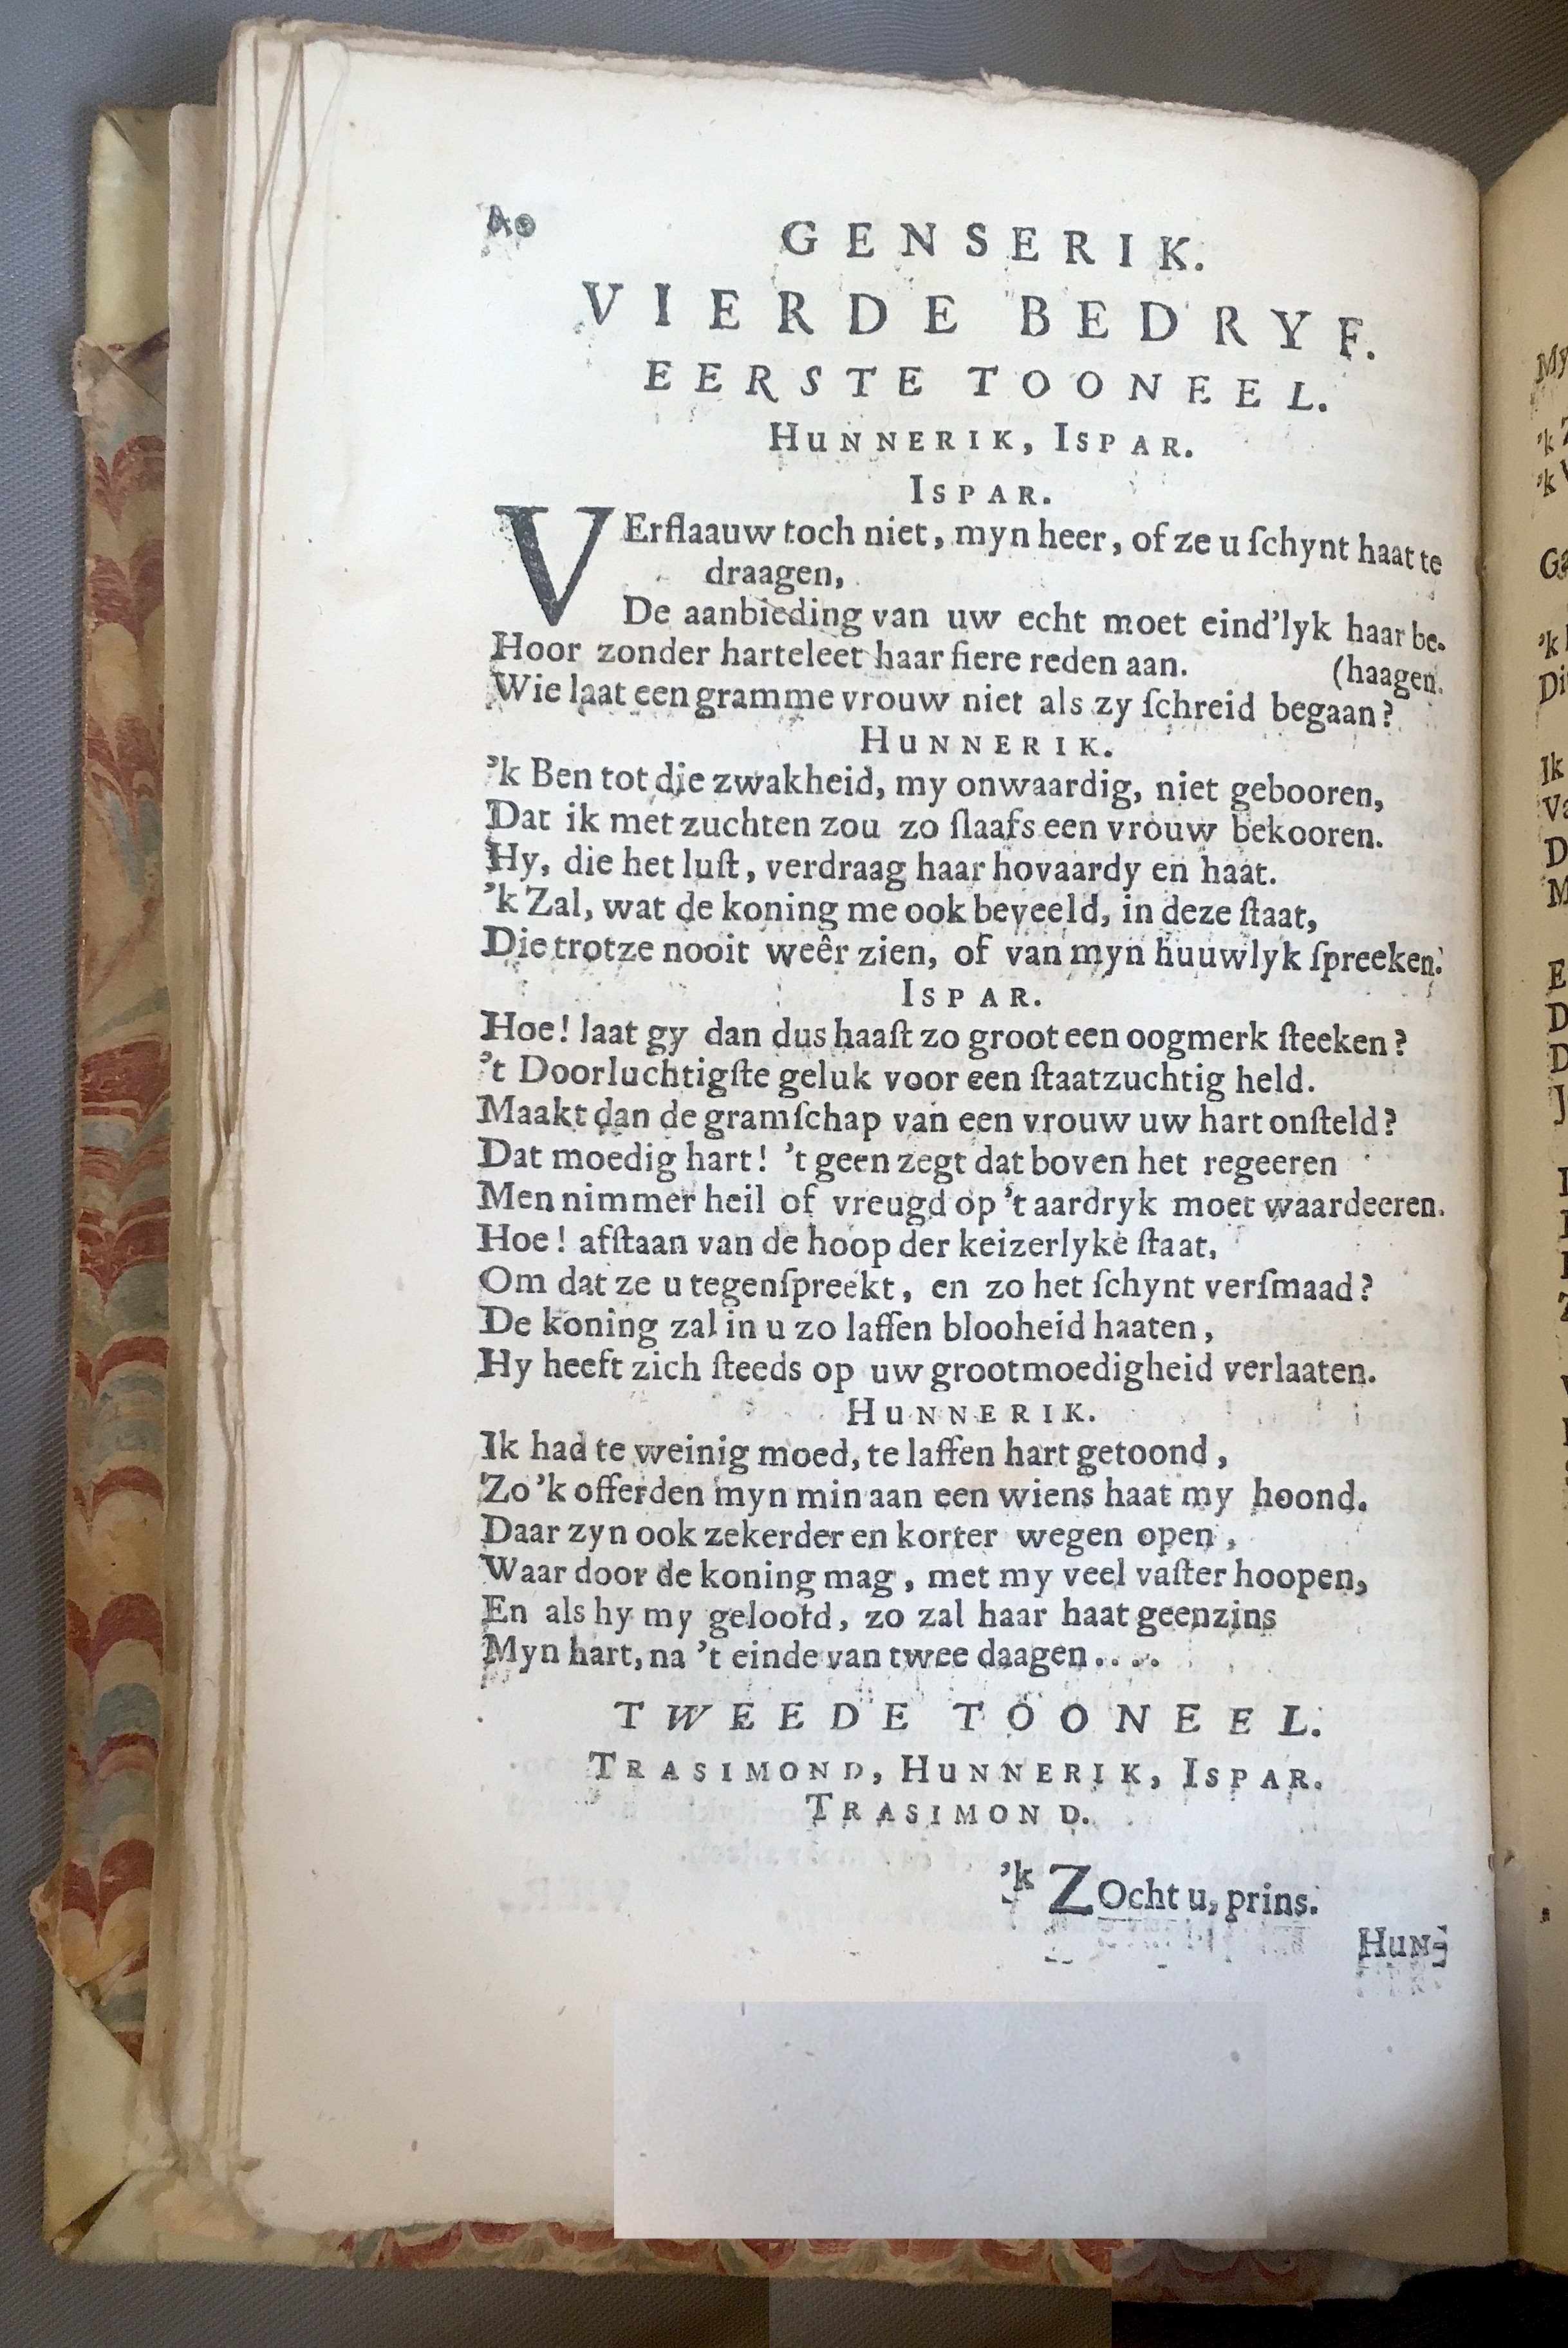 40
GENSERIK.
VIERDE BEDRYF.
EERSTE TOONEEL.
HUNNERIK, ISPAR.
ISPAR.
VErflaauw toch niet, myn heer, of ze u ſchynt haat te
draagen,
De aanbieding van uw echt moet eind'lyk haar be-
Hoor zonder harteleet haar fiere reden aan. (haagen.
Wie laat een gramme vrouw niet als zy ſchreid begaan?
HUNNERIK.
'k Ben tot die zwakheid, my onwaardig, niet gebooren,
Dat ik met zuchten zou zo ſlaafs een vrouw bekooren.
Hy, die het luſt, verdraag haar hovaardy en haat.
'k Zal, wat de koning me ook beveeld, in deze ſtaat,
Die trotze nooit weêr zien, of van myn huuwlyk ſpreeken.
ISPAR.
Hoe! laat gy dan dus haaſt zo groot een oogmerk ſteeken?
't Doorluchtigſte geluk voor een ſtaatzuchtig held.
Maakt dan de gramſchap van een vrouw uw hart onſteld?
Dat moedig hart! 't geen zegt dat boven het regeeren
Men nimmer heil of vreugd op 't aardryk moet waardeeren.
Hoe! afſtaan van de hoop der keizerlyke ſtaat,
Om dat ze u tegenſpreekt, en zo het ſchynt verſmaad?
De koning zal in u zo laffen blooheid haaten,
Hy heeft zich ſteeds op uw grootmoedigheid verlaaten.
HUNNERIK.
Ik had te weinig moed, te laffen hart getoond,
Zo 'k offerden myn min aan een wiens haat my hoond.
Daar zyn ook zekerder en korter wegen open,
Waar door de koning mag, met my veel vaſter hoopen,
En als hy my gelooſd, zo zal haar haat geenzins
Myn hart, na 't einde van twee daagen....
TWEEDE TOONEEL.
TRASIMOND, HUNNERIK, ISPAR.
TRASIMOND.
'k ZOcht u, prins.
HUN-